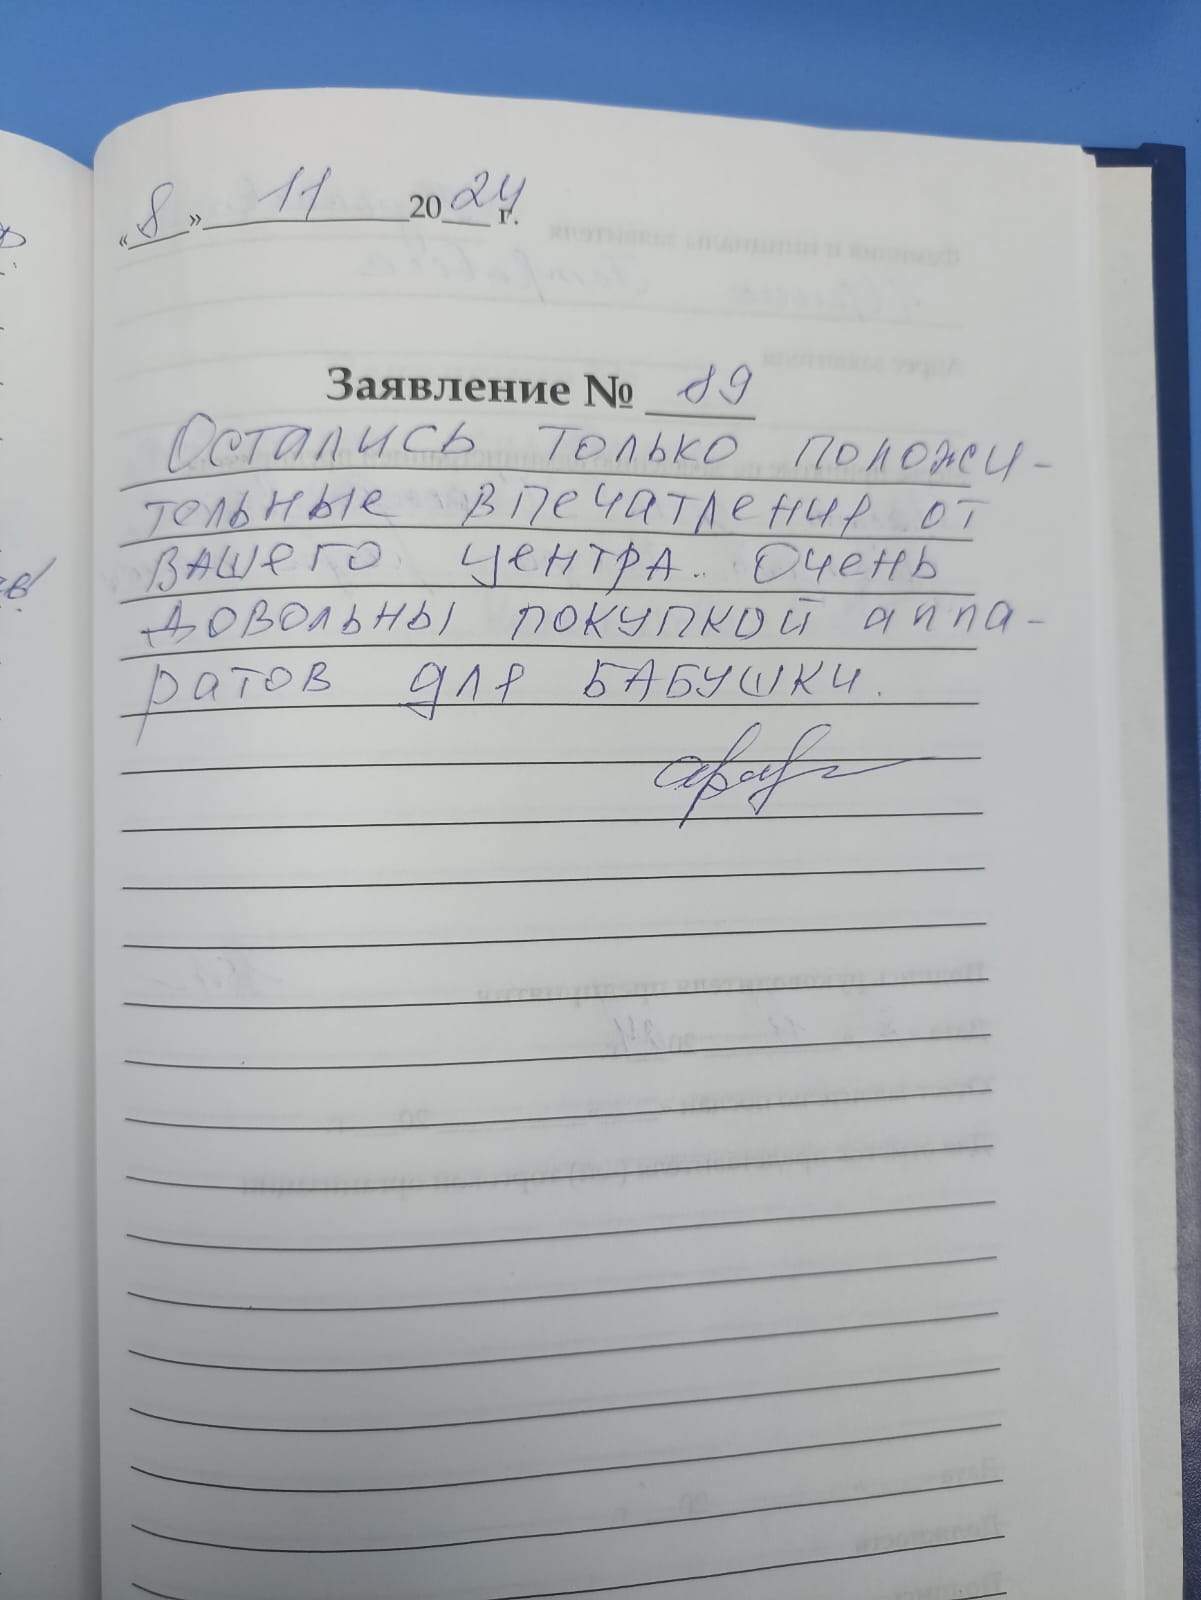 «8» 11 2024 г.
Заявление № 89
Остались только положи-
тельные впечатления от
вашего центра. Очень
довольны покупкой аппа-
ратов для бабушки.